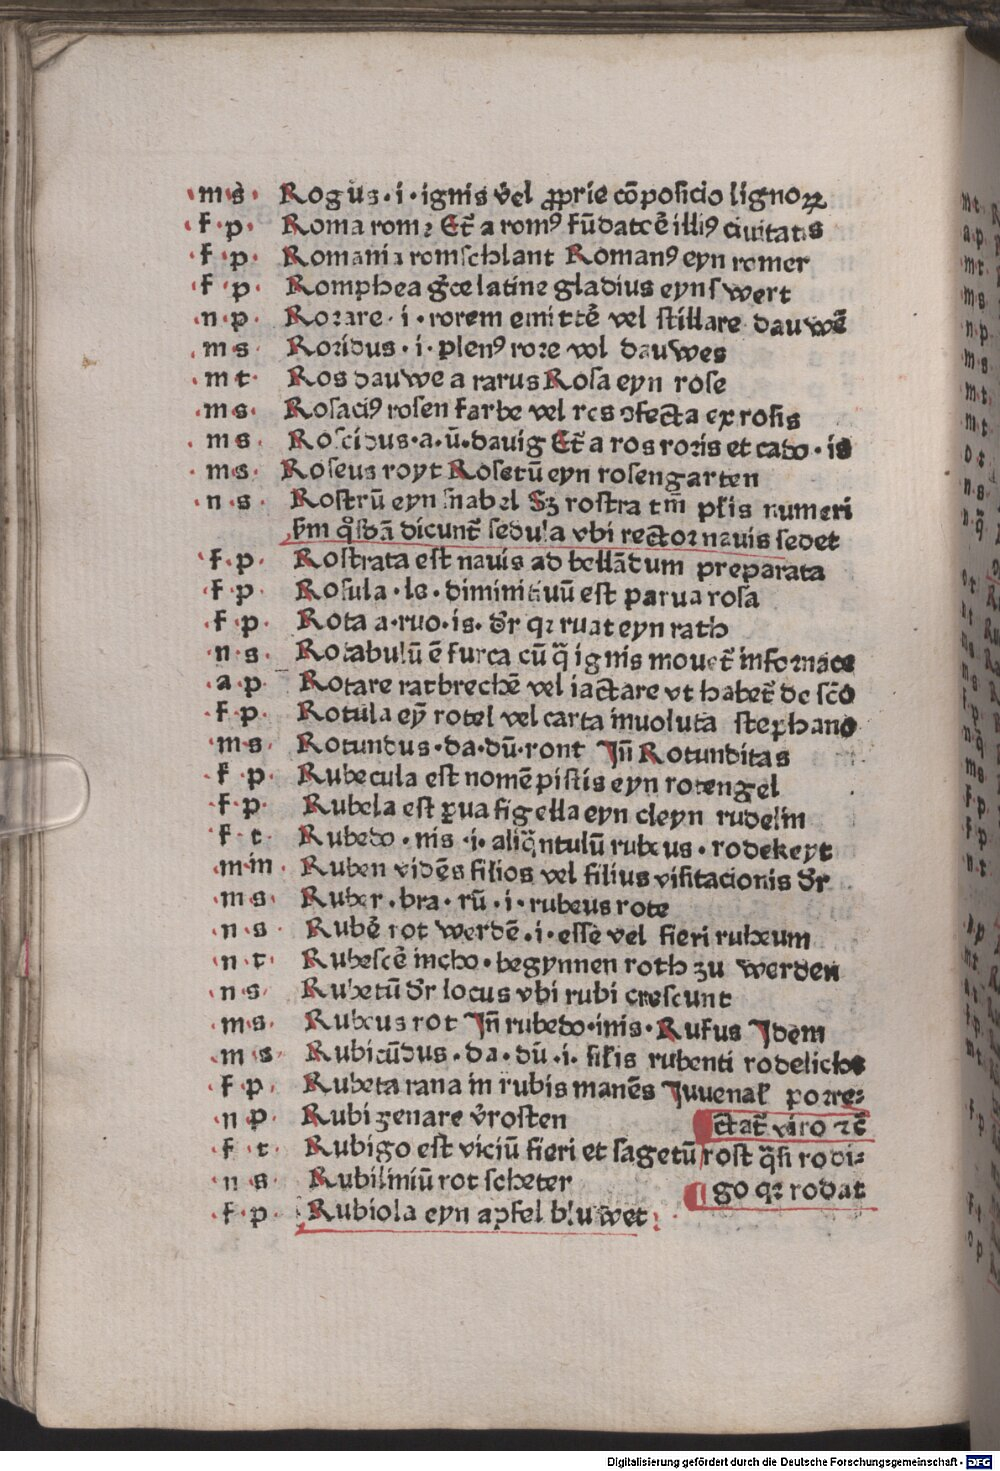 ·m·s· Rogus·i·ignis v̄el ꝓprie cōposicio lignoꝝ
·f·p· Roma rome Et̄ a romꝰ fūdatcē illiꝰ ciuitatis
·f·p· Romania romschlant Romanꝰ eyn romer
·f·p· Romphea gͣce latine gladius eyn swert
·n·p· Rorare·i·rorem emittē vel stillare dauwē
·m s· Roridus·i·plenꝰ rore vol dauwes
·m t· Ros dauwe a rarus Rosa eyn rose
·m s· Rosaciꝰ rosen farbe vel res ɔfecta ex rosis
·m s· Roscidus·a·ū·dauig Et̄ a ros roris et cado·is
·m s· Roseus royt Rosetū eyn rosengarten
·n·s· Rostrū eyn snabel Sꝫ rostra tm̄ pl̄is numeri
sm̄ qͦsdā dicunt̄ sedula vbi rector nauis sedet
·f·p· Rostrata est nauis ad bellādum preparata
·f·p· Rosula·le·diminitiuū est parua rosa
·f·p· Rota a·ruo·is·dr̄ qꝛ ruat eyn rath
·n·s· Rotabulū ē furca cū q̄ ignis mouet̄ in fornace
·a·p· Rotare ratbrechē vel iactare vt habet̄ de scō
·f·p· Rotula eȳ rotel vel carta inuoluta stephano
·m s· Rotundus·da·dū·ront Jn̄ Rotunditas
·f·p· Rubecula est nomē piscis eyn rotengel
·f·p· Rubela est ꝑua figella eyn cleyn rudelin
·f·t· Rubedo·nis·i·aliq̄ntulū rubeus·rodekeyt
·m·m· Ruben vidēs filios vel filius visitacionis dr̄
·m s· Ruber·bra·rū·i·rubeus rote
·n·s· Rubē rot werdē·i·esse vel fieri rubeum
·n·t· Rubescē incho·begynnen roth zu werden
·n·s· Rubetū dr̄ locus vbi rubi crescunt
·m·s· Rubeus rot Jn̄ rubedo·inis·Rufus Jdem
·m s· Rubicūdus·da·dū·i·sil̄is rubenti rodeliche
·f·p· Rubeta rana in rubis manēs Juuenal̄ porre⸗
·n p· Rubigenare v̄rosten ctat̄ viro ⁊c̄
·f·t· Rubigo est viciū fieri et sagetū rost q̄si rodi⸗
·n s· Rubiliniū rot scheter go qꝛ rodat
·f·p· Rubiola eyn apfel bluwet
Digitalisierung gefördert durch die Deutsche Forschungsgemeinschaft - DFG